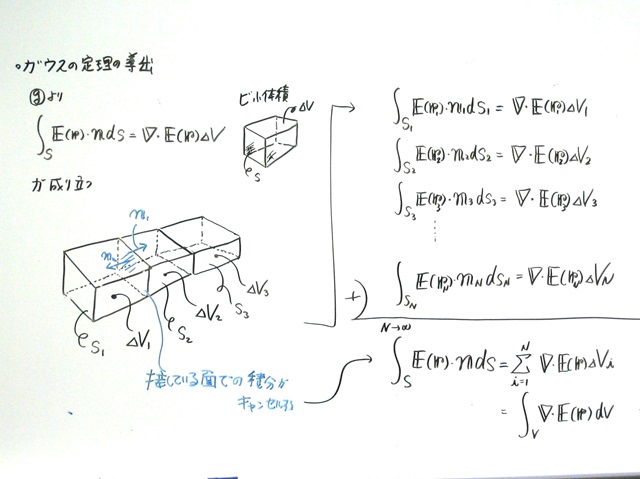 ・ガウスの定理の導出
⑨より
∫_S 𝔼(𝕣)・𝕟dS = ∇・𝔼(𝕣)ΔV
が成り立つ
ビ小体積
ΔV
S
𝕟₁
𝕟₂
S₁
ΔV₁
S₂
ΔV₂
S₃
ΔV₃
接している面での積分が
キャンセルする
∫_S₁ 𝔼(𝕣₁)・𝕟₁dS₁ = ∇・𝔼(𝕣₁)ΔV₁
∫_S₂ 𝔼(𝕣₂)・𝕟₂dS₂ = ∇・𝔼(𝕣₂)ΔV₂
∫_S₃ 𝔼(𝕣₃)・𝕟₃dS₃ = ∇・𝔼(𝕣₃)ΔV₃
⋮
+) ∫_S_N 𝔼(𝕣_N)・𝕟_N dS_N = ∇・𝔼(𝕣_N)ΔV_N
N→∞
∫_S 𝔼(𝕣)・𝕟dS = Σ_{i=1}^{N} ∇・𝔼(𝕣)ΔV_i
= ∫_V ∇・𝔼(𝕣)dV